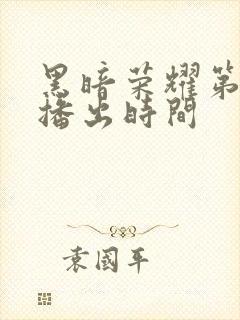 黑暗荣耀第
播出時間
袁國平